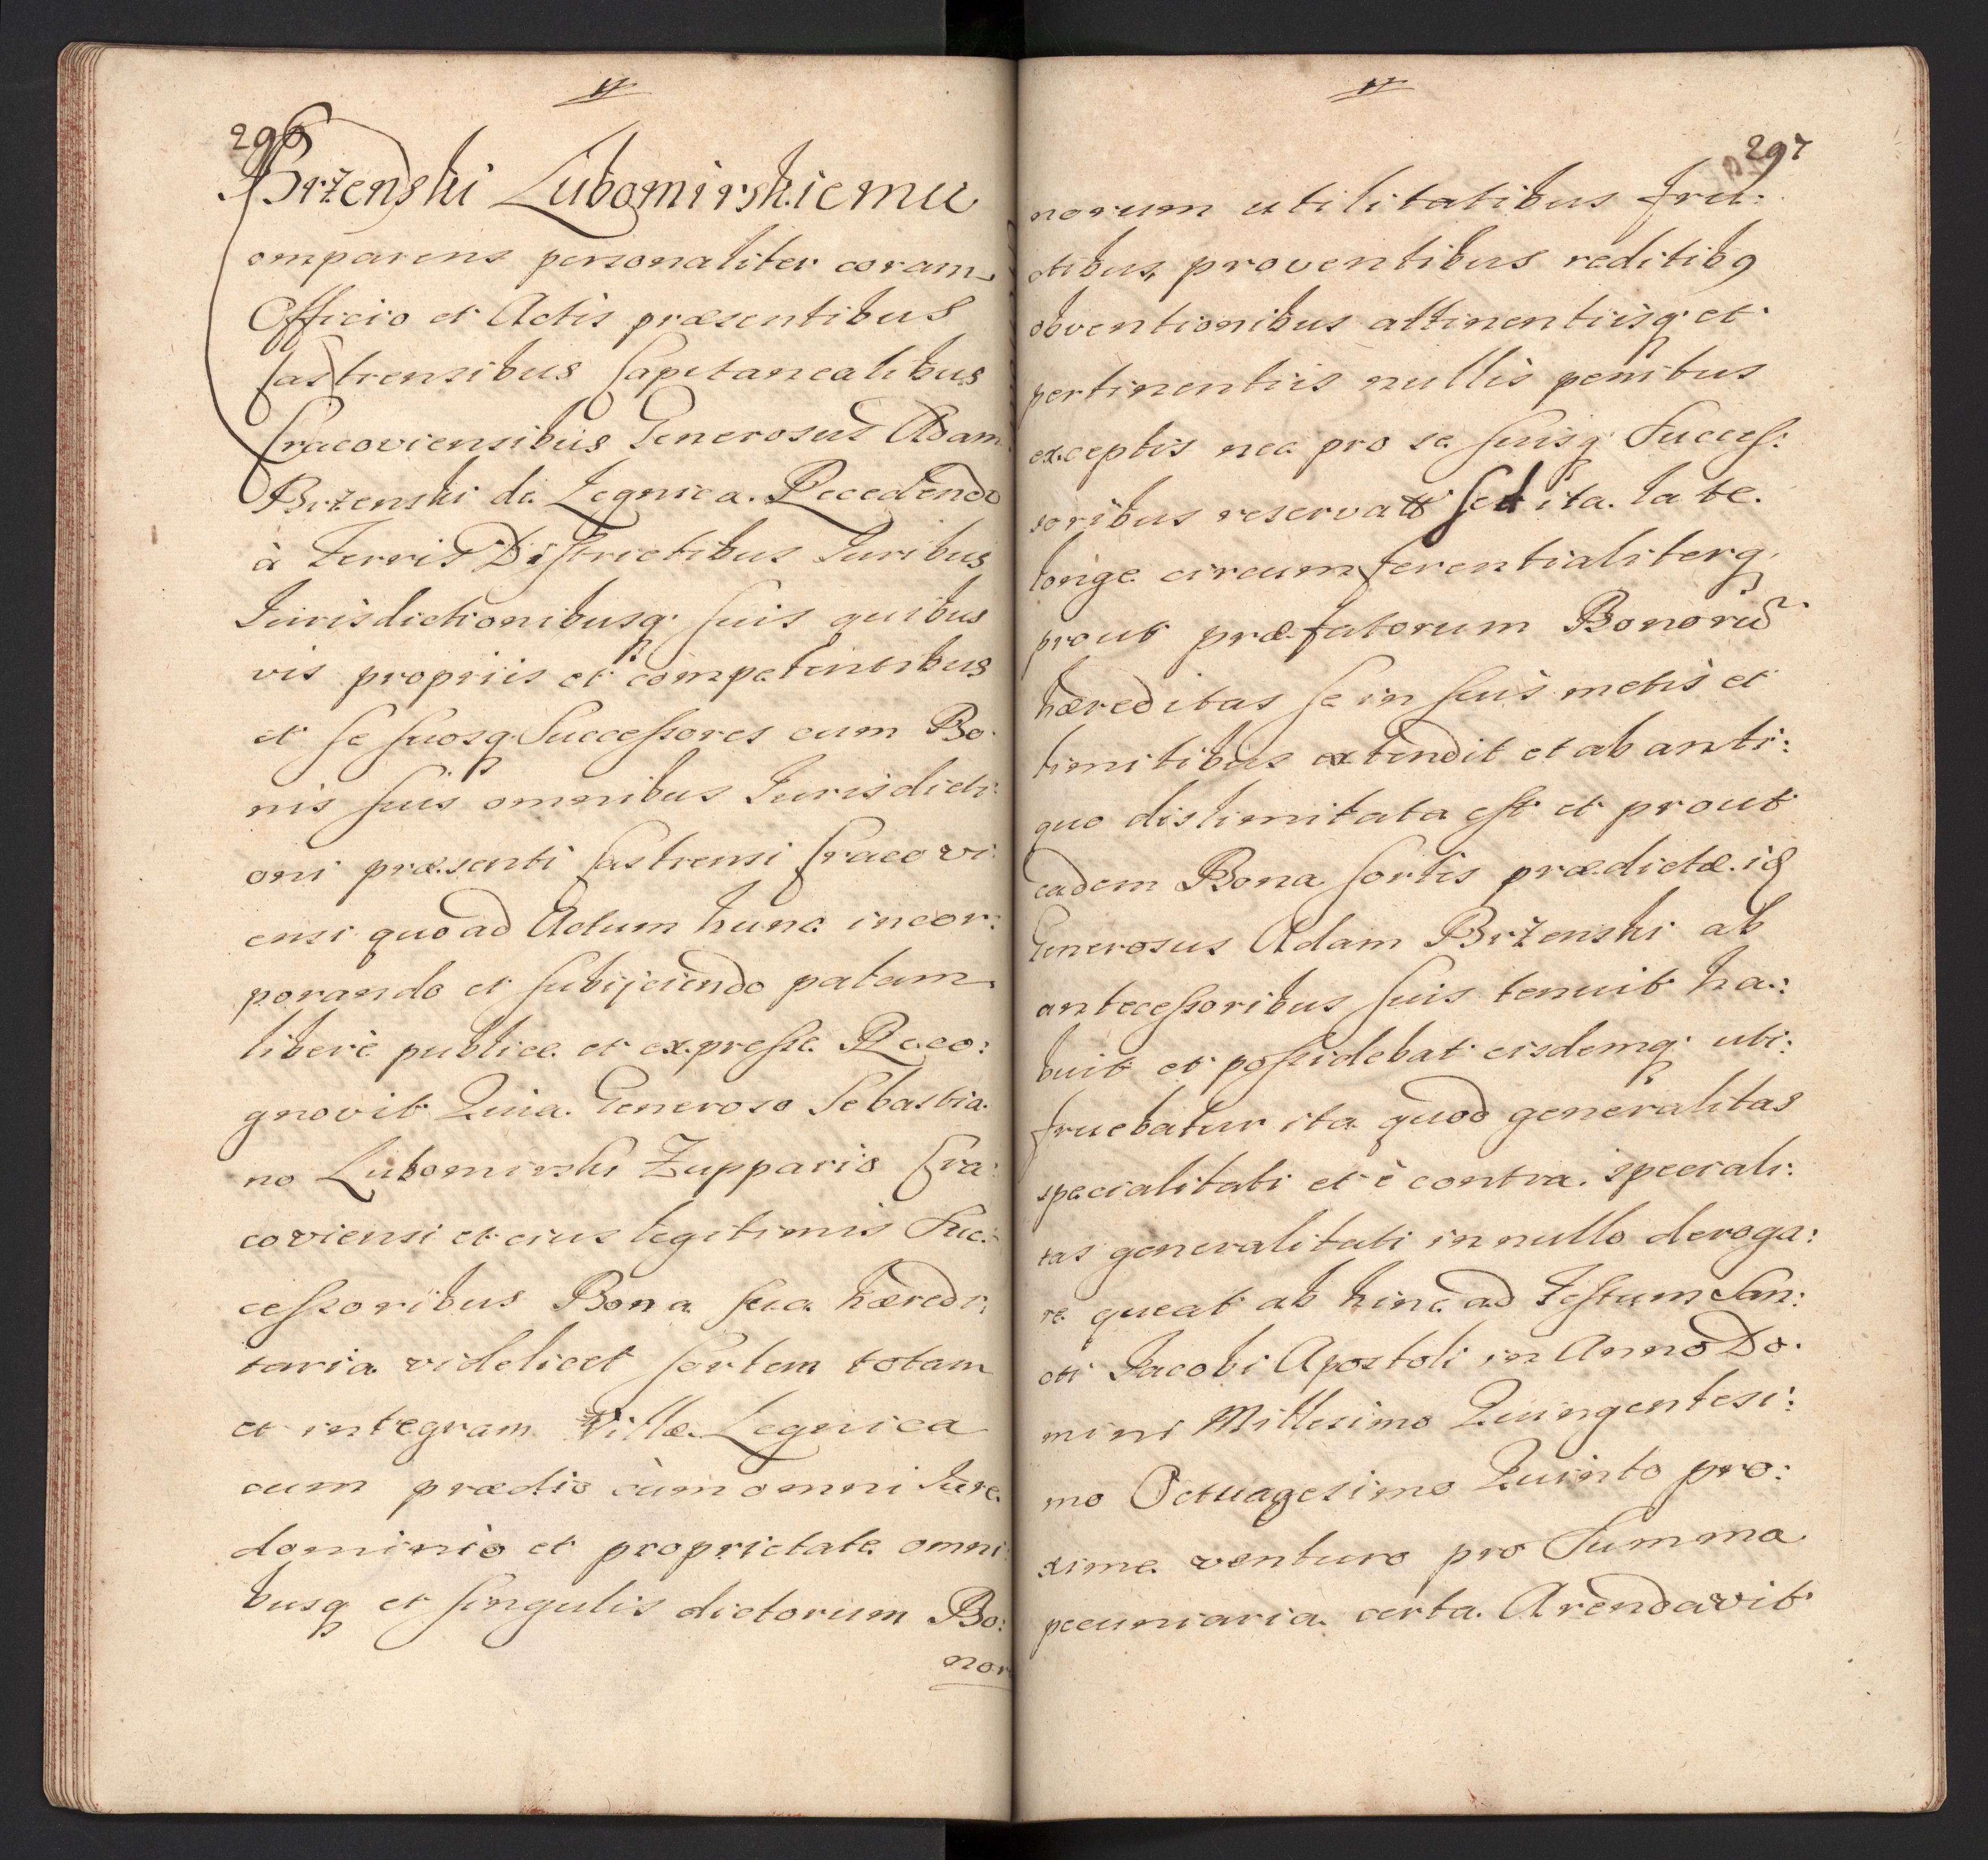 296
Brżenski Lubomirskiemu
Comparens personaliter coram
Officio et Actis præsentibus
Castrensibus Capitanealibus
Cracoviensibus Generosus Adam
Brżenski de Legnica. Recedendo
à Terris Districtibus Iuribus
Iurisdictionibusq suis quibus
vis propriis et competentibus
et se suosq Successores cum Bo:
nis suis omnibus Iurisdicti:
oni præsenti Castrensi Cracovi:
ensi quoad Actum hunc incor:
porando et subijciendo palam
liberè publice et expresse Reco:
gnovit Quia Generoso Sebastia:
no Lubomirski Zuppario Cra:
coviensi et eius legitimis Suc:
cessoribus Bona sua hæredi:
taria videlicet sortem totam
et integram Villæ Legnica
cum prædio cùm omni Iure
dominio et proprietate omni:
busq et singulis dictorum Bo:
nor
297
norum utilitatibus fru:
ctibus, proventibus reditibq
obventionibus attinentiisq et
pertinentiis nullis penitus
exceptis nec pro se suisq Succes:
soribus reservatis sed ita late
longe circumferentialiterq
prout præfatorum Bonorū
hæreditas se in suis metis et
limitibus extendit et ab anti:
quo dislimitata est et prout
eadem Bona sortis prædictæ
Generosus Adam Brżenski ab
antecessoribus suis tenuit ha:
buit et possidebat eisdemq uti:
fruebatur ita quod generalitas
specialitati et è contra speciali:
tas generalitati in nullo deroga:
re queat ab hinc ad Festum San:
cti Jacobi Apostoli in Anno Do:
mini Millesimo Quingentesi:
mo Octuagesimo Quinto pro:
xime venturo pro Summa
pecuniaria certa Arendavit